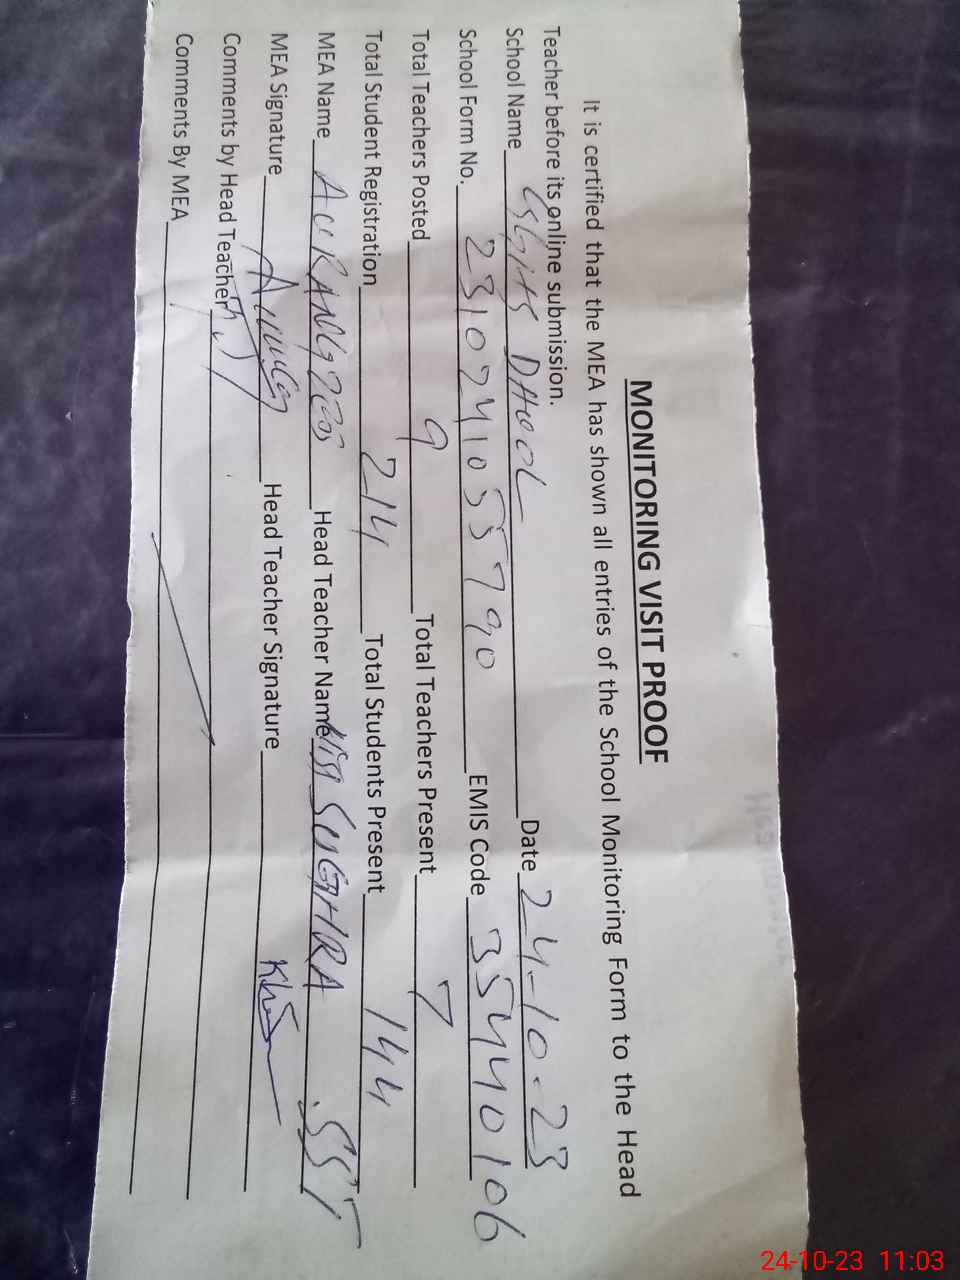 MONITORING VISIT PROOF
It is certified that the MEA has shown all entries of the School Monitoring Form to the Head
Teacher before its online submission.
School Name DHOOL Date 24-10-23
School Form No. 2310241055790 EMIS Code 35440106
Total Teachers Posted 9 Total Teachers Present 7
Total Student Registration 214 Total Students Present 144
MEA Name AURANGZEB Head Teacher Name SUGHRA SST
MEA Signature Head Teacher Signature
Comments by Head Teacher
Comments By MEA
24-10-23 11:03